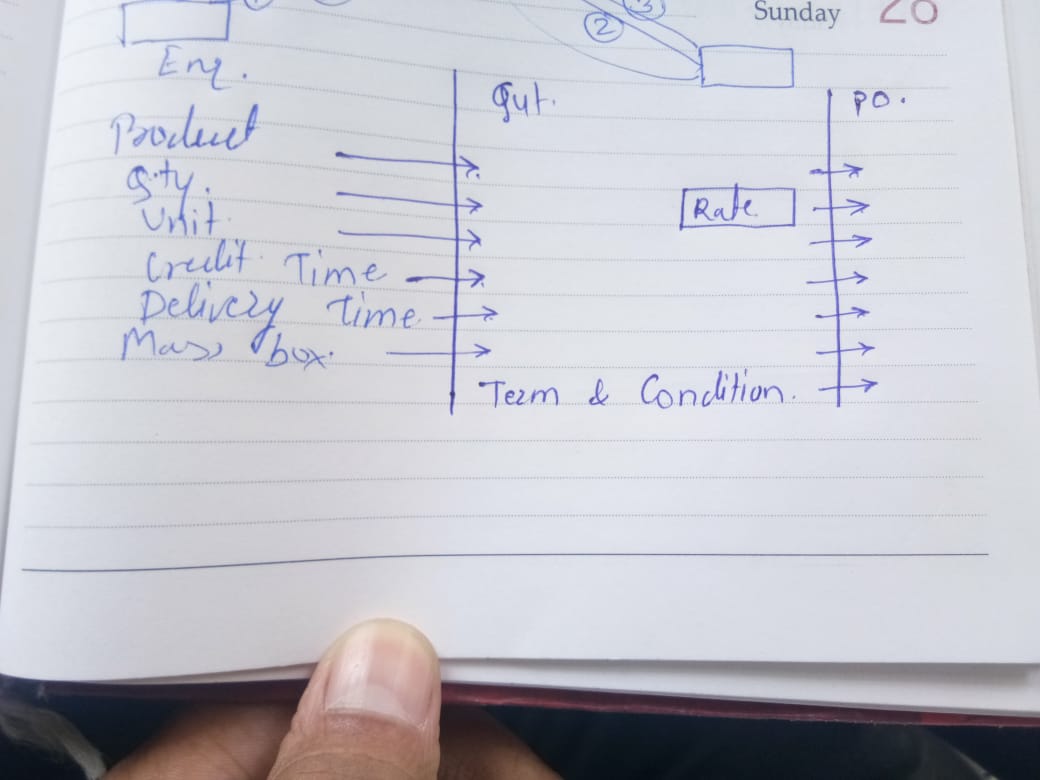 Sunday 28
②
③
Enq.
Qut.
PO.
Product
Qty.
Unit.
Rate
Credit Time
Delivery Time
Mass box.
Term & Condition.